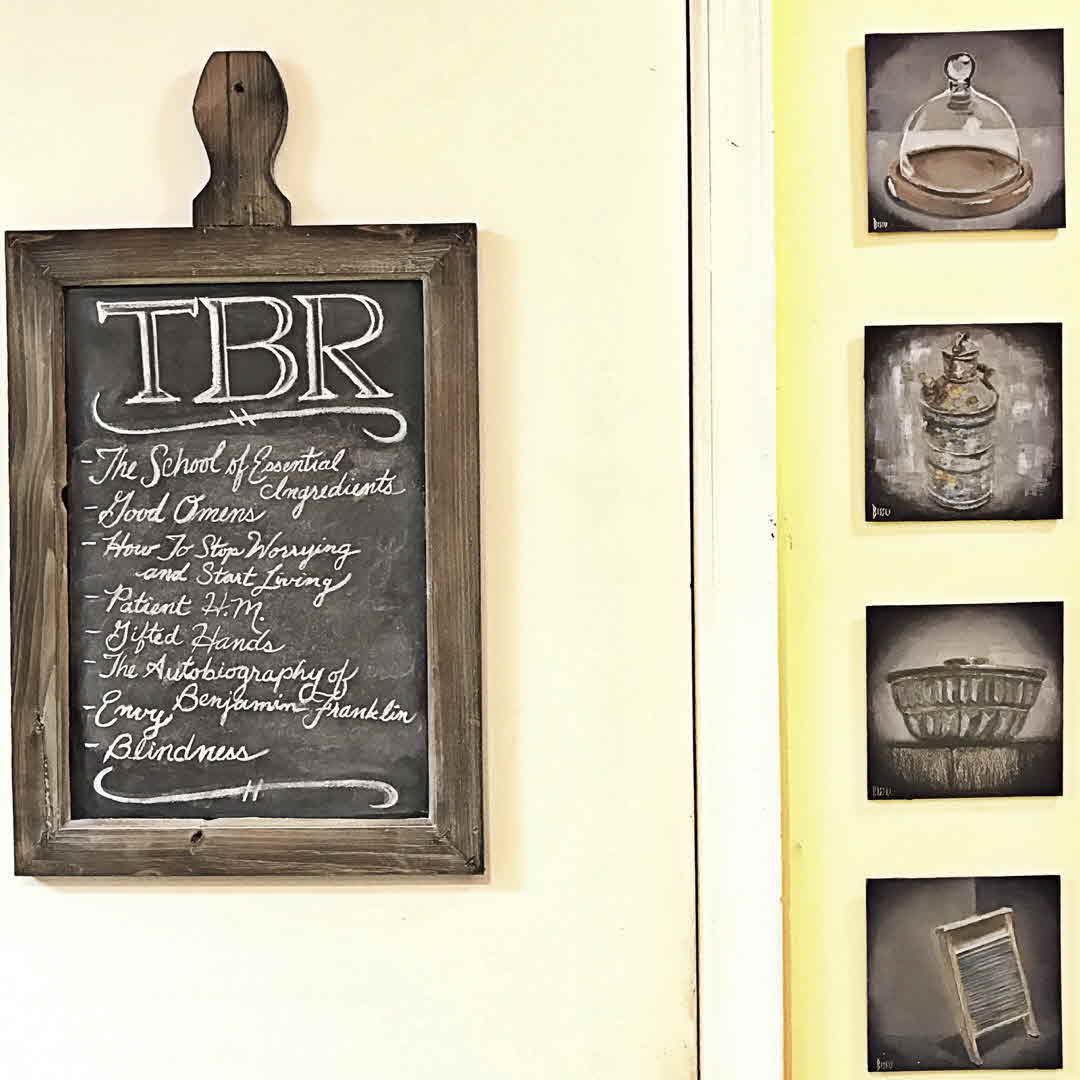 TBR
-The School of Essential
Ingredients
-Good Omens
-How To Stop Worrying
and Start Living
-Patient H.M.
-Gifted Hands
-The Autobiography of
Benjamin Franklin
-Envy
-Blindness